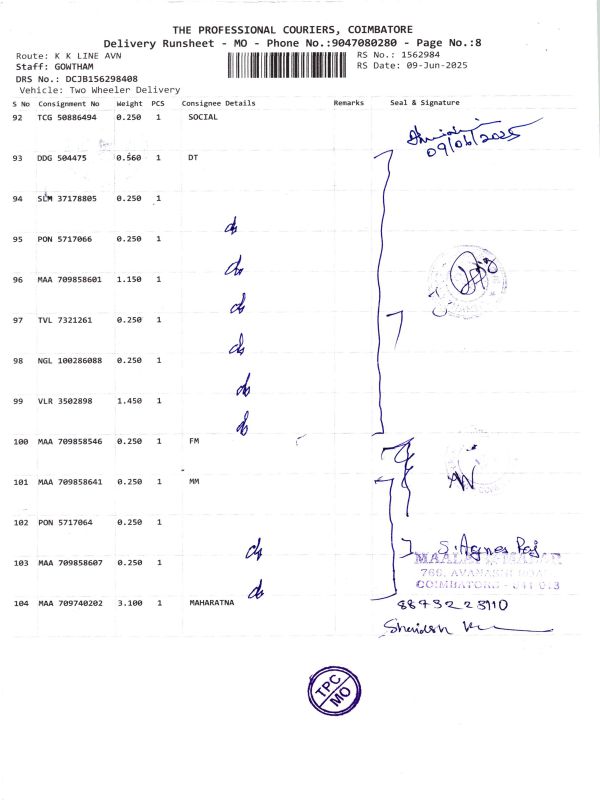 THE PROFESSIONAL COURIERS, COIMBATORE
Delivery Runsheet - MO - Phone No.:9047080280 - Page No.:8
Route: K K LINE AVN
RS No.: 1562984
Staff: GOWTHAM
RS Date: 09-Jun-2025
DRS No.: DCJB156298408
Vehicle: Two Wheeler Delivery
S No Consignment No Weight PCS Consignee Details Remarks Seal & Signature
92 TCG 50886494 0.250 1 SOCIAL
09/06/2025
93 DDG 504475 0.560 1 DT
94 SLM 37178805 0.250 1
95 PON 5717066 0.250 1
do
96 MAA 709858601 1.150 1
do
97 TVL 7321261 0.250 1
do
7
98 NGL 100286088 0.250 1
do
99 VLR 3502898 1.450 1
do
100 MAA 709858546 0.250 1 FM
do
101 MAA 709858641 0.250 1 MM
102 PON 5717064 0.250 1
S. Agnes Raj
103 MAA 709858607 0.250 1
do
766, AVANASHI ROAD
COIMBATORE
104 MAA 709740202 3.100 1 MAHARATNA
do
TPC
MO